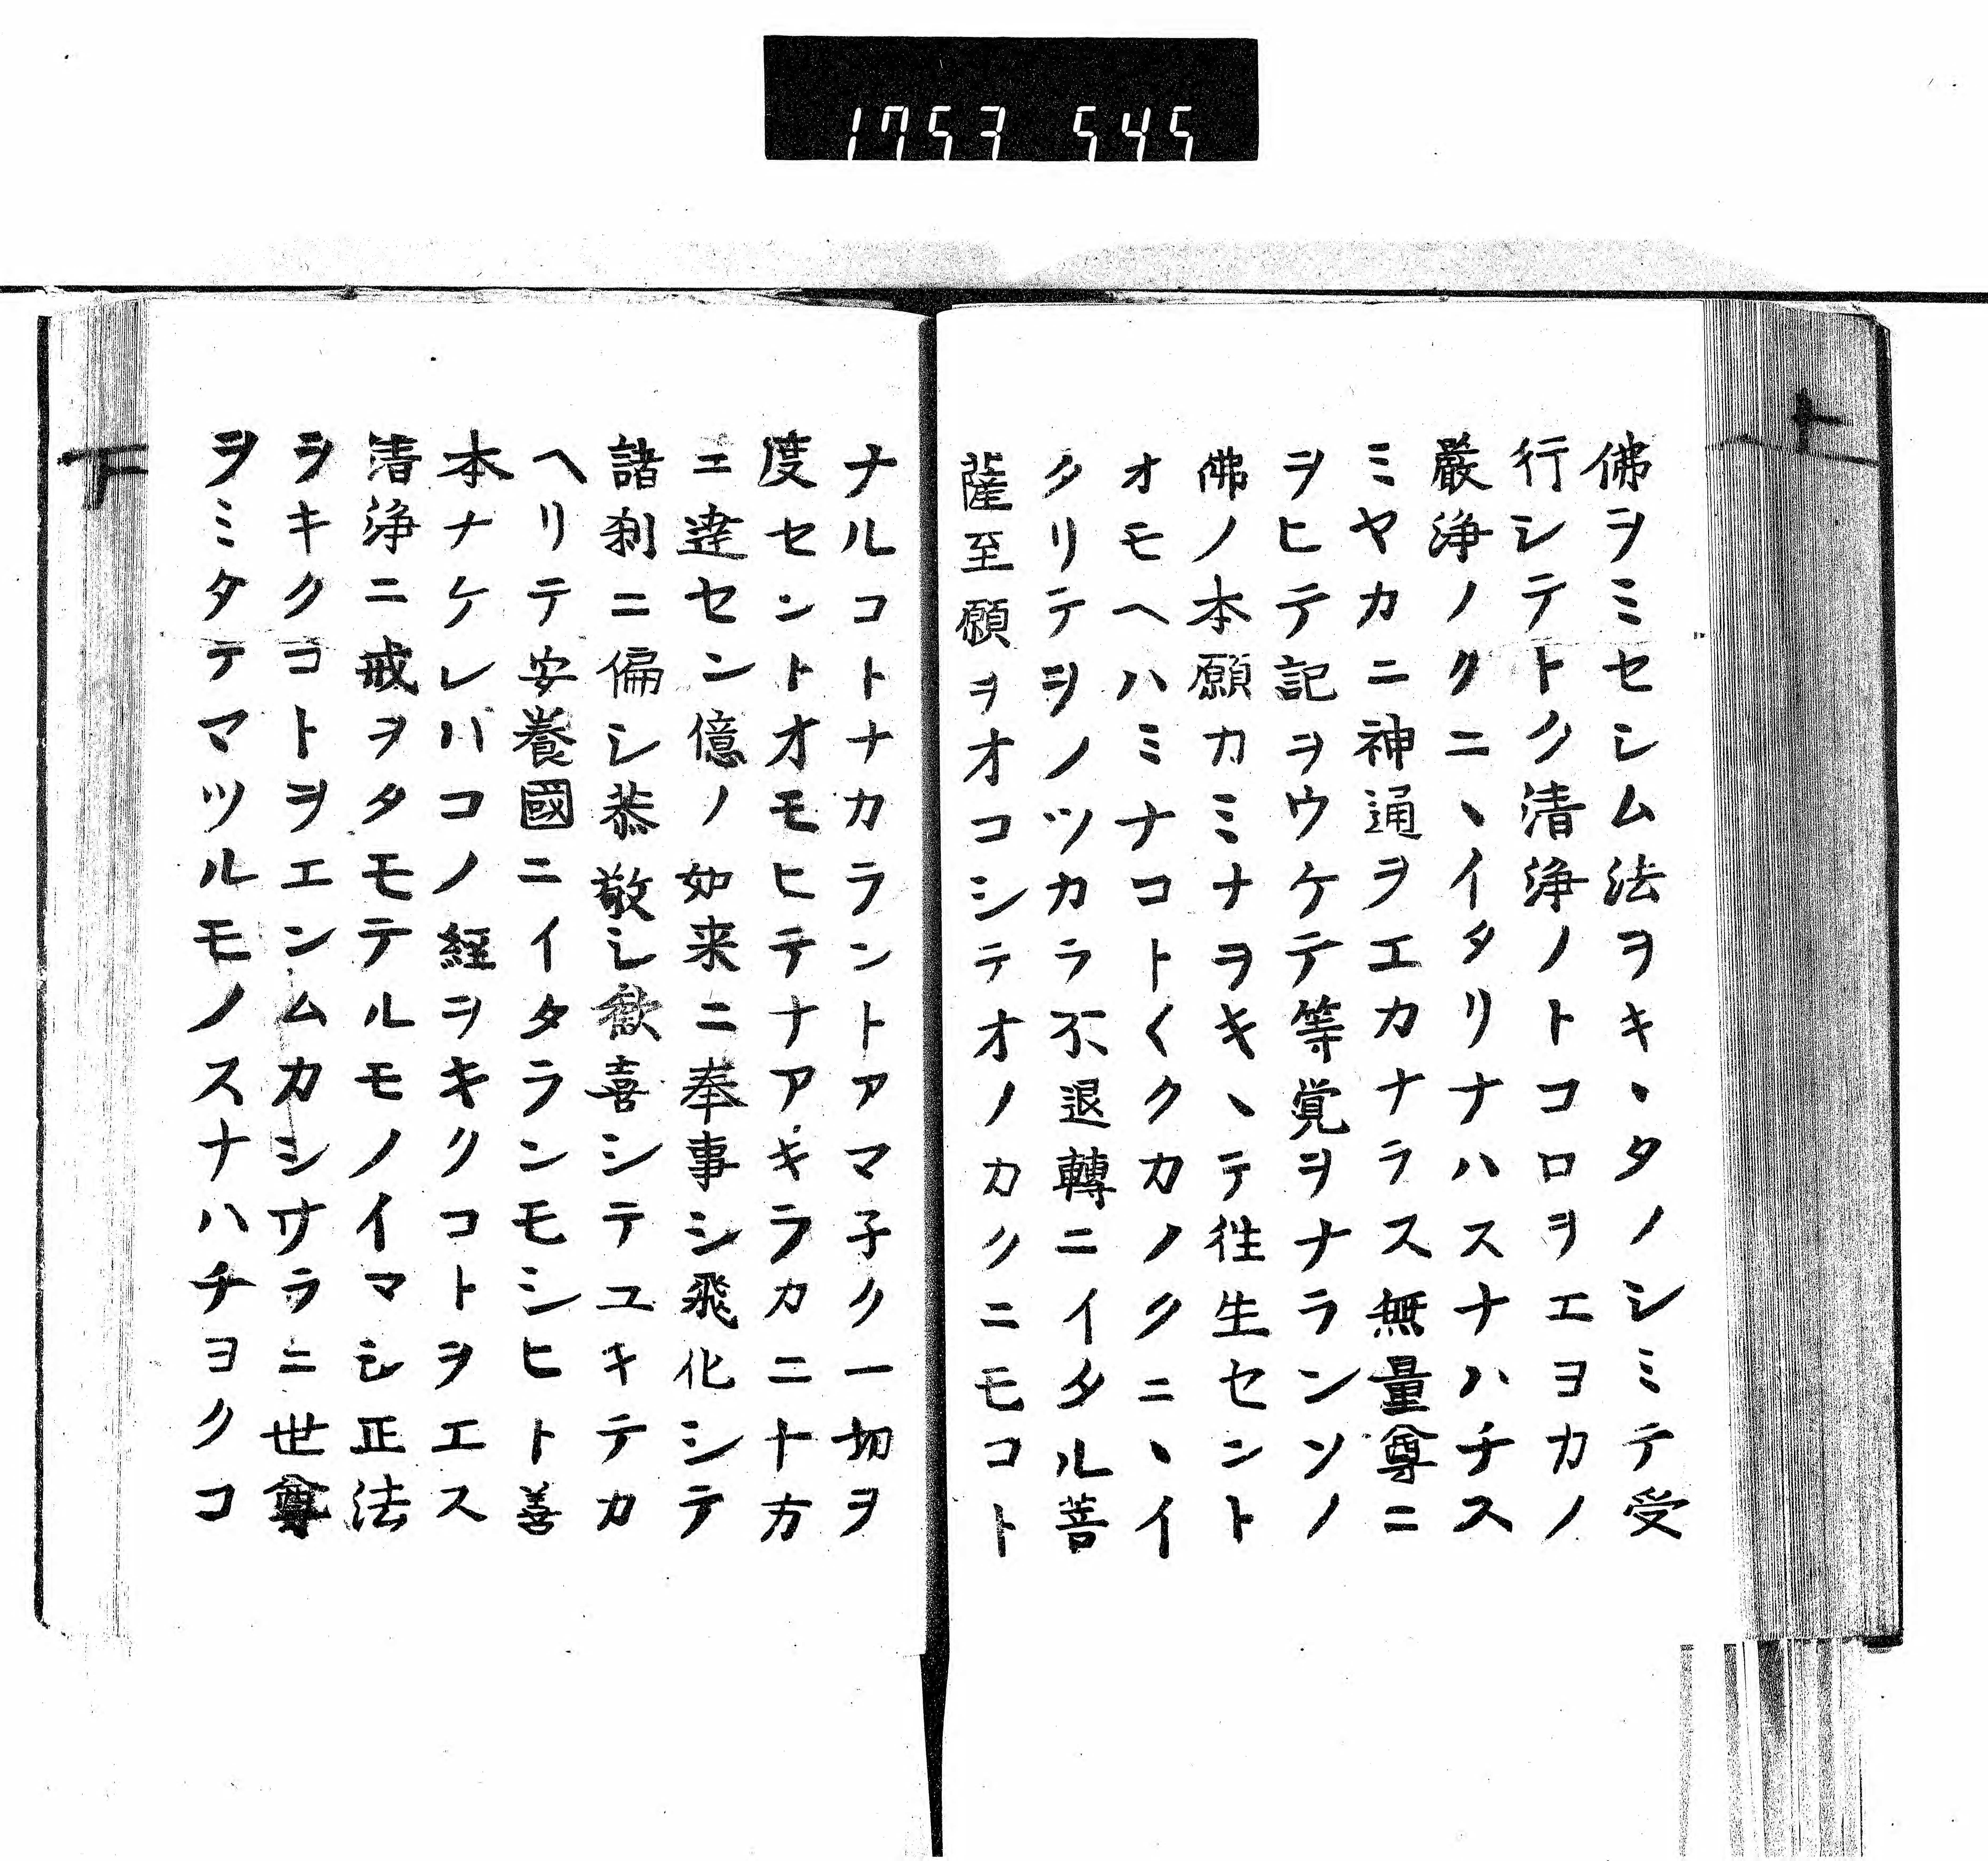 1753 545
佛ヲミセシム法ヲキヽタノシミテ受
行シテトク清浄ノトコロヲエヨカノ
嚴浄ノクニヽイタリナハスナハチス
ミヤカニ神通ヲエカナラス無量尊ニ
ヲヒテ記ヲウケテ等覚ヲナランソノ
佛ノ本願カミナヲキヽテ徃生セント
オモヘハミナコト〱クカノクニヽイ
タリテヲノツカラ不退轉ニイタル菩
薩至願ヲオコシテオノカクニモコト
ナルコトナカラントアマ子ク一切ヲ
度セントオモヒテナアキラカニ十方
ニ達セン億ノ如来ニ奉事シ飛化シテ
諸刹ニ徧シ恭敬シ歓喜シテユキテカ
ヘリテ安養國ニイタランモシヒト善
本ナケレハコノ経ヲキクコトヲエス
清浄ニ戒ヲタモテルモノイマシ正法
ヲキクコトヲエンムカシサラニ世尊
ヲミタテマツルモノスナハチヨクコ